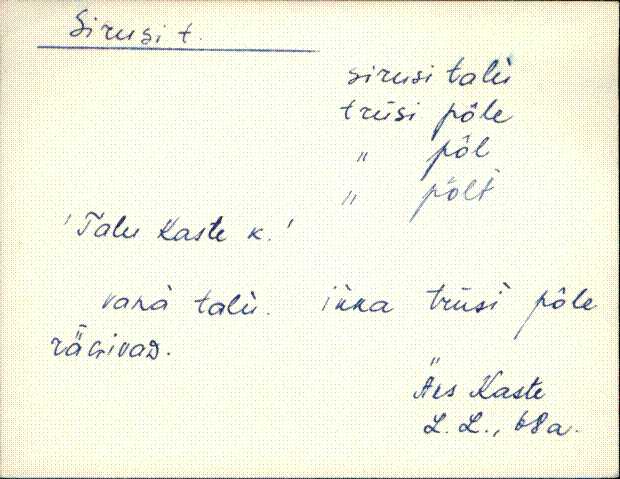 Sirusi t.
sirusi talù
trüsi põle
" põl
" põlt
'Talu Kaste k.'
vanà talù. ikka trüsì põle
räɢivaᴅ.
Äks Kaste
L. L., 68a.